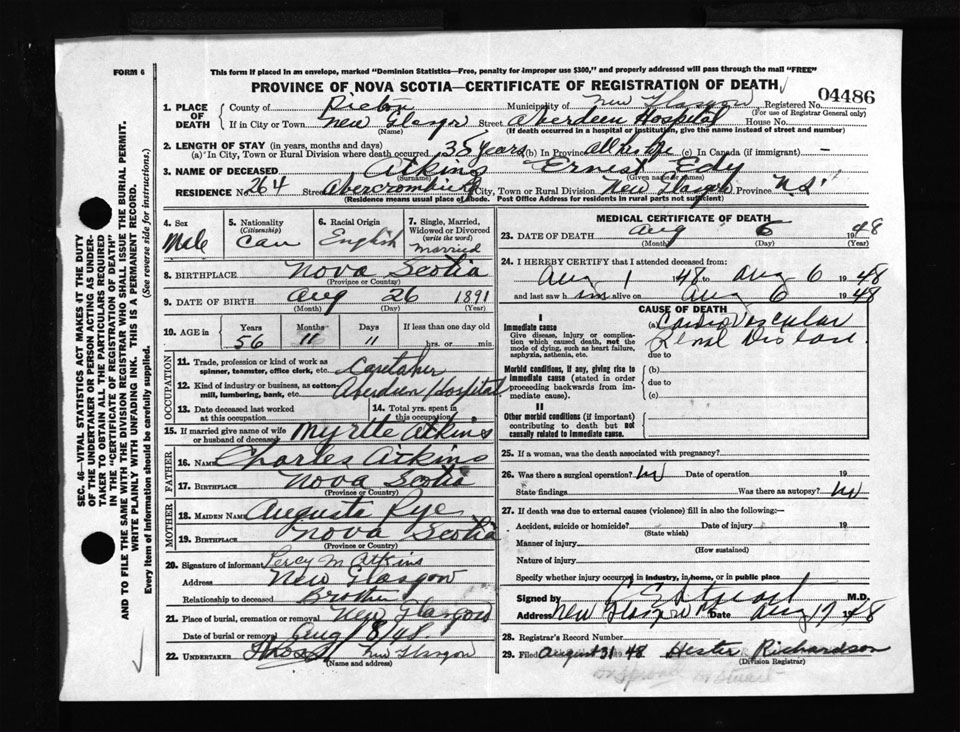 FORM 6
This form if placed in an envelope, marked "Dominion Statistics—Free, penalty for improper use $300," and properly addressed will pass through the mail "FREE"
PROVINCE OF NOVA SCOTIA—CERTIFICATE OF REGISTRATION OF DEATH
04486
1. PLACE OF DEATH
County of Pictou Municipality of New Glasgow Registered No.
(For use of Registrar General only)
If in City or Town New Glasgow Street Aberdeen Hospital House No.
(Name) (If death occurred in a hospital or institution, give the name instead of street and number)
2. LENGTH OF STAY (in years, months and days)
(a) In City, Town or Rural Division where death occurred 35 years (b) In Province all his life (c) In Canada (if immigrant) —
3. NAME OF DECEASED Atkins Ernest Edy
(Surname) (Given names)
RESIDENCE No. 264 Street Abercrombie City, Town or Rural Division New Glasgow Province N.S.
(Residence means usual place of abode. Post Office Address for residents in rural parts not sufficient)
4. Sex Male
5. Nationality (Citizenship) Can
6. Racial Origin English
7. Single, Married, Widowed or Divorced (write the word) married
8. BIRTHPLACE Nova Scotia
(Province or Country)
9. DATE OF BIRTH Aug 26 1891
(Month) (Day) (Year)
10. AGE in Years Months Days If less than one day old
56 11 11 hrs. or min.
OCCUPATION
11. Trade, profession or kind of work as spinner, teamster, office clerk, etc. Caretaker
12. Kind of industry or business, as cotton-mill, lumbering, bank, etc. Aberdeen Hospital
13. Date deceased last worked at this occupation
14. Total yrs. spent in this occupation
15. If married give name of wife or husband of deceased Myrtle Atkins
FATHER
16. NAME Charles Atkins
17. BIRTHPLACE Nova Scotia
(Province or Country)
MOTHER
18. MAIDEN NAME Augusta Pye
19. BIRTHPLACE Nova Scotia
(Province or Country)
20. Signature of informant Percy M Atkins
Address New Glasgow
Relationship to deceased Brother
21. Place of burial, cremation or removal New Glasgow
Date of burial or removal Aug 8/48.
22. UNDERTAKER New Glasgow
(Name and address)
MEDICAL CERTIFICATE OF DEATH
23. DATE OF DEATH Aug 6 1948
(Month) (Day) (Year)
24. I HEREBY CERTIFY that I attended deceased from:
Aug 1 1948 to Aug 6 1948
and last saw him alive on Aug 6 1948
CAUSE OF DEATH
I
Immediate cause
Give disease, injury or complication which caused death, not the mode of dying, such as heart failure, asphyxia, asthenia, etc.
(a) Cardio Vascular
Renal Disease.
due to
Morbid conditions, if any, giving rise to immediate cause (stated in order proceeding backwards from immediate cause).
(b)
due to
(c)
II
Other morbid conditions (if important) contributing to death but not causally related to immediate cause.
25. If a woman, was the death associated with pregnancy?
26. Was there a surgical operation? no Date of operation 19
State findings Was there an autopsy? no
27. If death was due to external causes (violence) fill in also the following:—
Accident, suicide or homicide? Date of injury 19
(State which)
Manner of injury
(How sustained)
Nature of injury
Specify whether injury occurred in industry, in home, or in public place
Signed by M.D.
Address New Glasgow Date Aug 17 1948
28. Registrar's Record Number
29. Filed August 31 48 Hester Richardson
(Division Registrar)
SEC. 46—VITAL STATISTICS ACT MAKES IT THE DUTY
OF THE UNDERTAKER OR PERSON ACTING AS UNDER-
TAKER TO OBTAIN ALL THE PARTICULARS REQUIRED
IN THE "CERTIFICATE OF REGISTRATION OF DEATH"
AND TO FILE THE SAME WITH THE DIVISION REGISTRAR WHO SHALL ISSUE THE BURIAL PERMIT.
WRITE PLAINLY WITH UNFADING INK. THIS IS A PERMANENT RECORD.
Every item of Information should be carefully supplied. (See reverse side for instructions.)